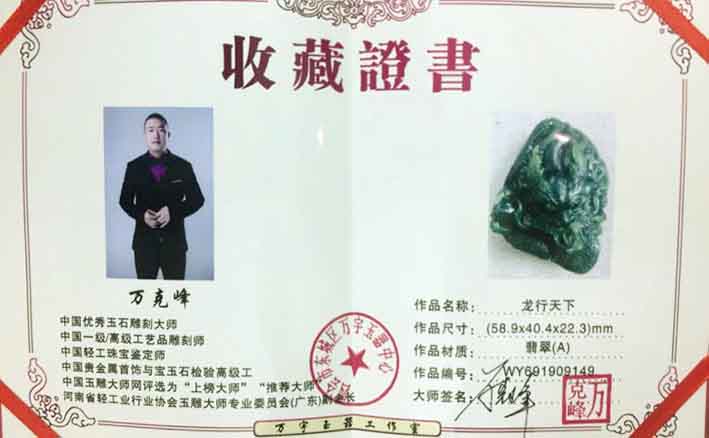 收藏證書
万克峰
中国优秀玉石雕刻大师
中国一级/高级工艺品雕刻师
中国轻工珠宝鉴定师
中国贵金属首饰与宝玉石检验高级工
中国玉雕大师网评选为“上榜大师” “推荐大师”
河南省轻工业行业协会玉雕大师专业委员会(广东)副会长
市东城区万宇玉器中心
作品名称: 龙行天下
作品尺寸: (58.9x40.4x22.3)mm
作品材质: 翡翠(A)
作品编号: WY691909149
大师签名:
万克峰
万宇玉器工作室